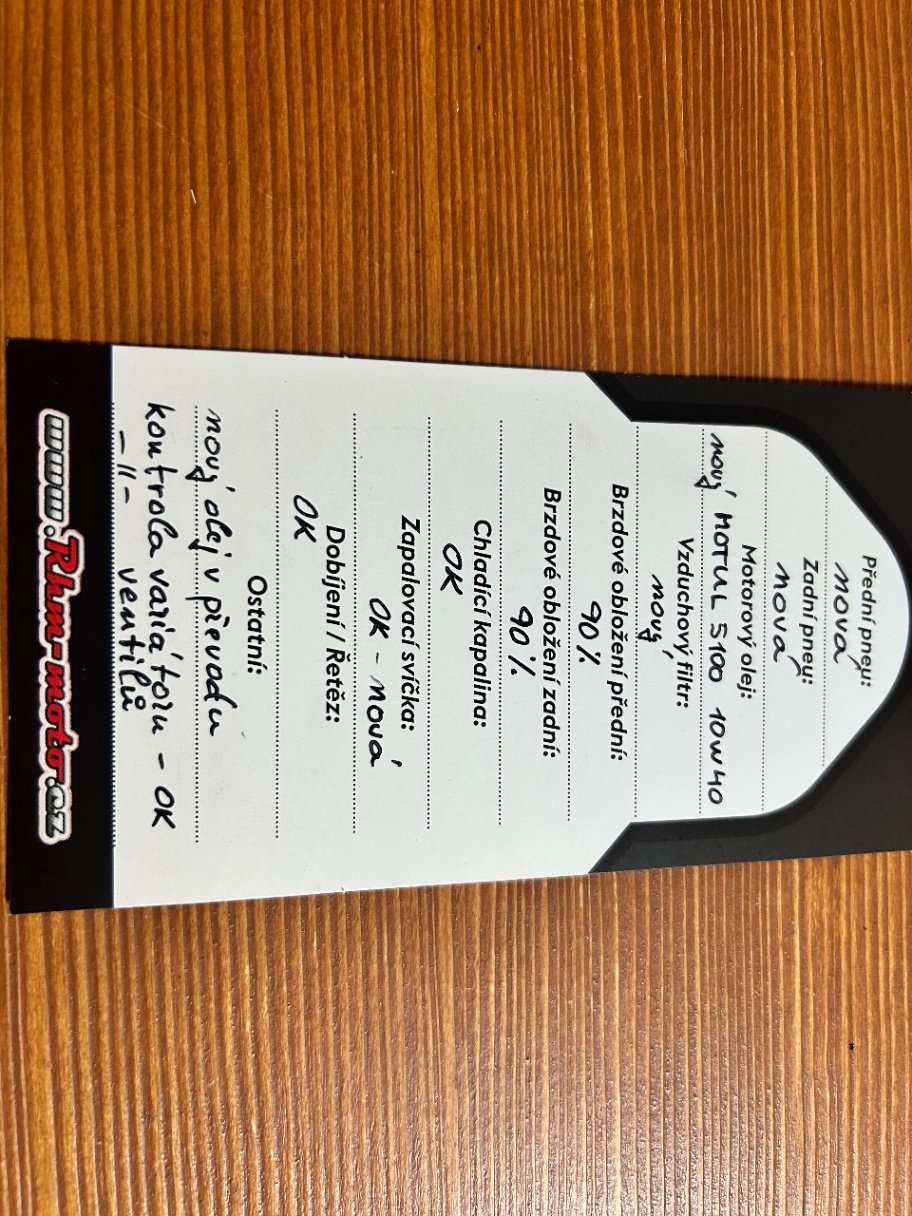 Přední pneu:
nová
Zadní pneu:
nová
Motorový olej:
nový MOTUL 5100 10W40
Vzduchový filtr:
nový
Brzdové obložení přední:
90%
Brzdové obložení zadní:
90%
Chladící kapalina:
OK
Zapalovací svíčka:
OK - nová
Dobíjení / Řetěz:
OK
Ostatní:
nový olej v převodu
kontrola variátoru - OK
-"- ventilů
www.Rhm-moto.cz